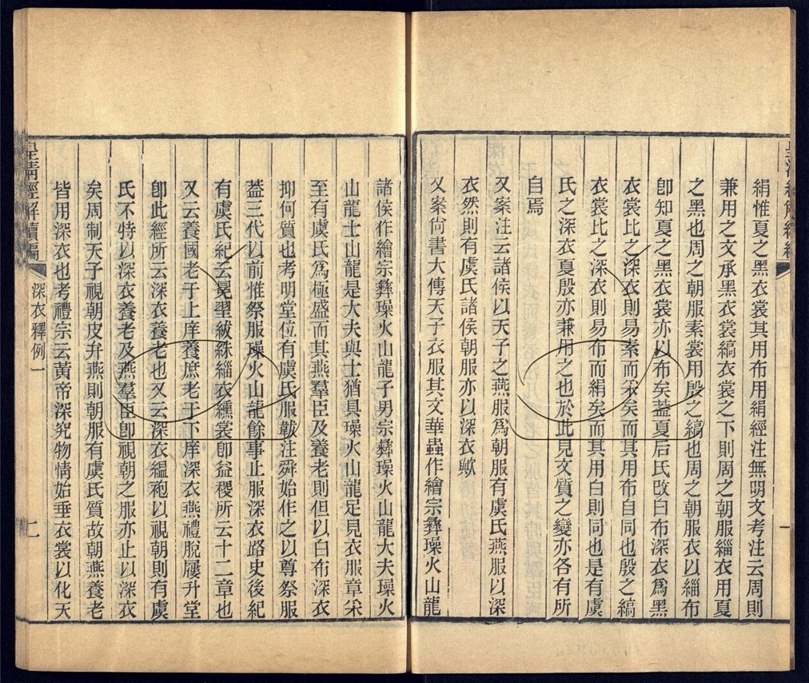 絹惟夏之黑衣裳其用布用絹經注無明文考注云周則
兼用之文承黑衣裳縞衣裳之下則周之朝服緇衣用夏
之黑也周之朝服素裳用殷之縞也周之朝服衣以緇布
卽知夏之黑衣裳亦以布矣蓋夏后氏改白布深衣爲黑
衣裳比之深衣則易素而不矣而其用布自同也殷之縞
衣裳比之深衣則易布而絹矣而其用白則同也是有虞
氏之深衣夏殷亦兼用之也於此見文質之變亦各有所
自焉
又案注云諸侯以天子之燕服爲朝服有虞氏燕服以深
衣然則有虞氏諸侯朝服亦以深衣歟
又案尙書大傳天子衣服其文華蟲作繪宗彝璪火山龍
諸侯作繪宗彝璪火山龍子男宗彝璪火山龍大夫璪火
山龍士山龍是大夫與士猶具璪火山龍足見衣服章采
至有虞氏爲極盛而其燕羣臣及養老則但以白布深衣
抑何質也考明堂位有虞氏服韍注舜始作之以尊祭服
蓋三代以前惟祭服璪火山龍餘事止服深衣路史後紀
有虞氏紀云冕璪紱絺緇衣纁裳卽益稷所云十二章也
又云養國老于上庠養庶老于下庠深衣燕禮脫屨升堂
卽此經所云深衣養老也又云深衣縕袍以視朝則有虞
氏不特以深衣養老及燕羣臣卽視朝之服亦止以深衣
矣周制天子視朝皮弁燕則朝服有虞氏質故朝燕養老
皆用深衣也考禮宗云黃帝深究物情始垂衣裳以化天
皇淸經解續編
深衣釋例一